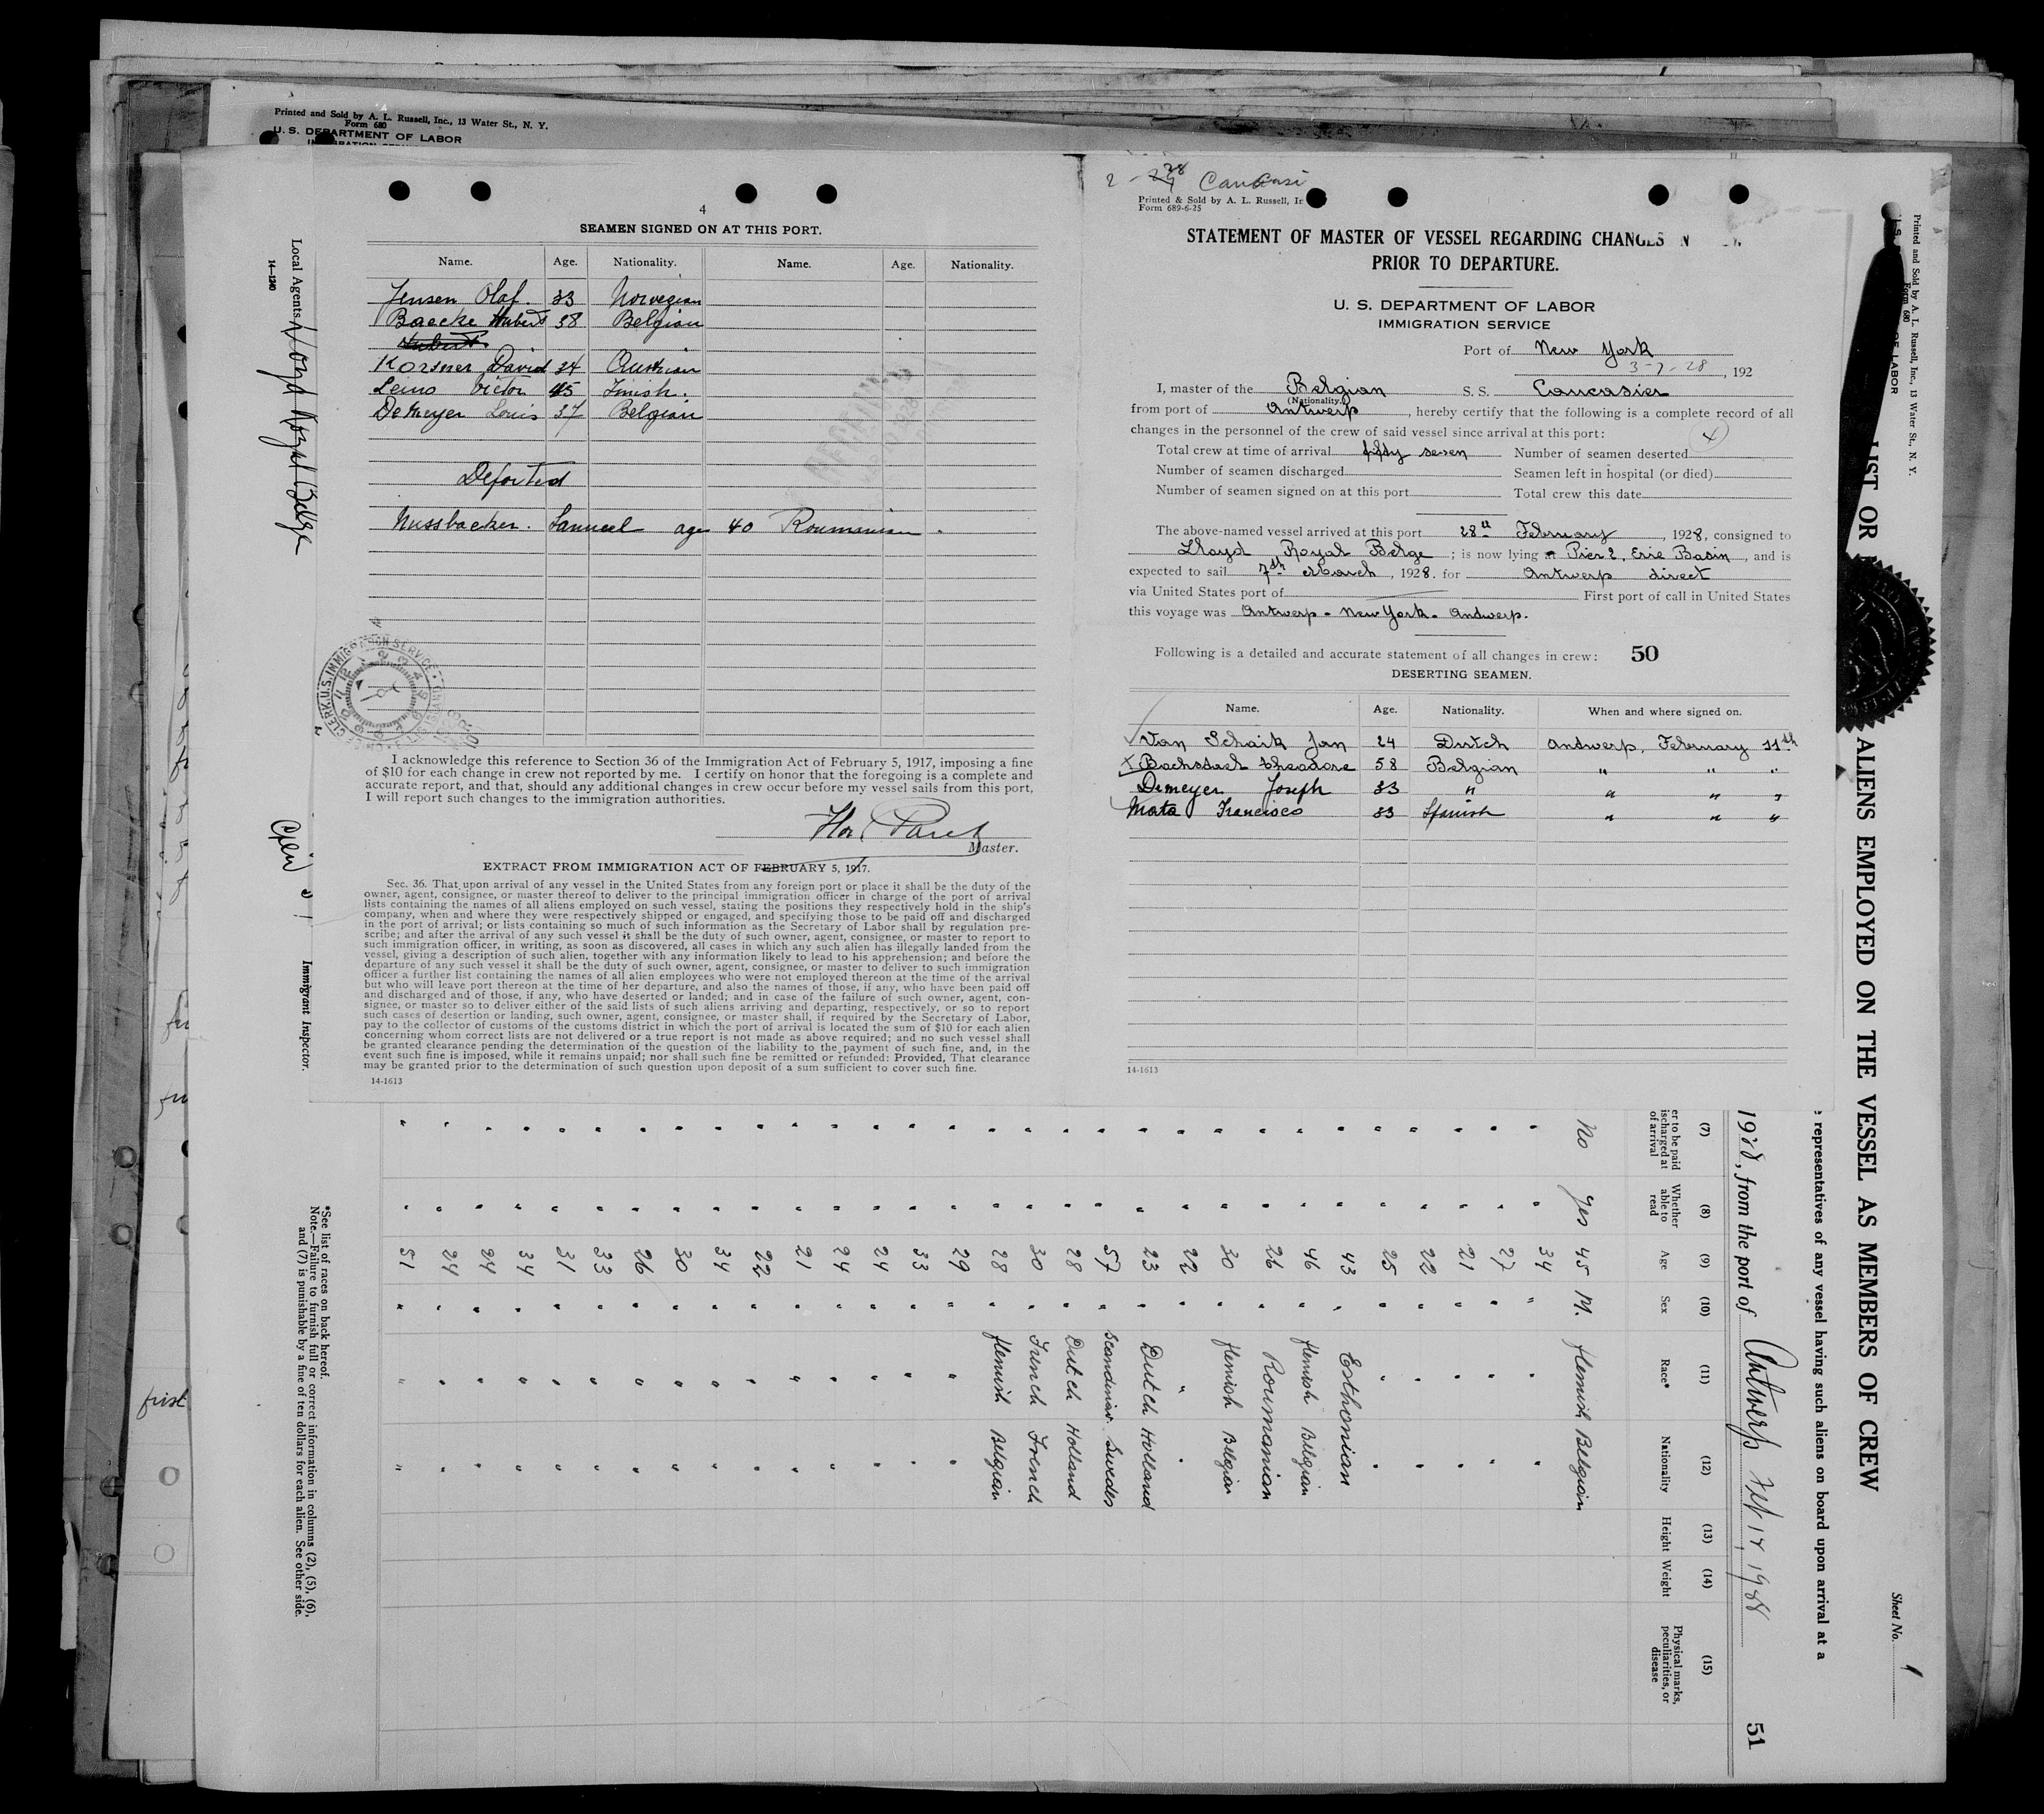 Printed and Sold by A. L. Russell, Inc., 13 Water St., N. Y.
Form 680
U. S. DEPARTMENT OF LABOR
4
SEAMEN SIGNED ON AT THIS PORT.
Name. Age. Nationality. Name. Age. Nationality.
Jensen Olaf. 33 Norvegian
Baecke Hubert 38 Belgian
David 34
Leino Victor 45 Finish.
De Meyer Louis 37 Belgian
Deported
Nussbacker. Samuel age 40 Roumanian.
I acknowledge this reference to Section 36 of the Immigration Act of February 5, 1917, imposing a fine
of $10 for each change in crew not reported by me. I certify on honor that the foregoing is a complete and
accurate report, and that, should any additional changes in crew occur before my vessel sails from this port,
I will report such changes to the immigration authorities.
Master.
EXTRACT FROM IMMIGRATION ACT OF FEBRUARY 5, 1917.
Sec. 36. That upon arrival of any vessel in the United States from any foreign port or place it shall be the duty of the
owner, agent, consignee, or master thereof to deliver to the principal immigration officer in charge of the port of arrival
lists containing the names of all aliens employed on such vessel, stating the positions they respectively hold in the ship's
company, when and where they were respectively shipped or engaged, and specifying those to be paid off and discharged
in the port of arrival; or lists containing so much of such information as the Secretary of Labor shall by regulation pre-
scribe; and after the arrival of any such vessel it shall be the duty of such owner, agent, consignee, or master to report to
such immigration officer, in writing, as soon as discovered, all cases in which any such alien has illegally landed from the
vessel, giving a description of such alien, together with any information likely to lead to his apprehension; and before the
departure of any such vessel it shall be the duty of such owner, agent, consignee, or master to deliver to such immigration
officer a further list containing the names of all alien employees who were not employed thereon at the time of the arrival
but who will leave port thereon at the time of her departure, and also the names of those, if any, who have been paid off
and discharged and of those, if any, who have deserted or landed; and in case of the failure of such owner, agent, con-
signee, or master so to deliver either of the said lists of such aliens arriving and departing, respectively, or so to report
such cases of desertion or landing, such owner, agent, consignee, or master shall, if required by the Secretary of Labor,
pay to the collector of customs of the customs district in which the port of arrival is located the sum of $10 for each alien
concerning whom correct lists are not delivered or a true report is not made as above required; and no such vessel shall
be granted clearance pending the determination of the question of the liability to the payment of such fine, and, in the
event such fine is imposed, while it remains unpaid; nor shall such fine be remitted or refunded: Provided, That clearance
may be granted prior to the determination of such question upon deposit of a sum sufficient to cover such fine.
14-1613
Printed & Sold by A. L. Russell, In
Form 689-6-25
STATEMENT OF MASTER OF VESSEL REGARDING CHANGES
PRIOR TO DEPARTURE.
U. S. DEPARTMENT OF LABOR
IMMIGRATION SERVICE
Port of New York
3-7-28, 192
I, master of the Belgian S. S. Caucasier
(Nationality.)
from port of Antwerp, hereby certify that the following is a complete record of all
changes in the personnel of the crew of said vessel since arrival at this port:
Total crew at time of arrival fifty seven Number of seamen deserted 4
Number of seamen discharged Seamen left in hospital (or died)
Number of seamen signed on at this port Total crew this date
The above-named vessel arrived at this port 28th February, 1928, consigned to
Lloyd Royal Belge; is now lying at Pier 2, Erie Basin, and is
expected to sail 7th March, 1928. for Antwerp direct
via United States port of First port of call in United States
this voyage was Antwerp - New York - Antwerp.
Following is a detailed and accurate statement of all changes in crew: 50
DESERTING SEAMEN.
Name. Age. Nationality. When and where signed on.
Van Schaik Jan 24 Dutch Antwerp, February 11th
theodore 58 Belgian " " "
Demeyer Joseph 33 " " " "
Mata Francisco 33 Spanish " " "
14-1613
Local Agents Lloyd Royal Belge
14-1240
Immigrant Inspector.
Printed and Sold by A. L. Russell, Inc., 13 Water St., N. Y.
Form 680
OF LABOR
Sheet No. 1
LIST OR
ALIENS EMPLOYED ON THE VESSEL AS MEMBERS OF CREW
representatives of any vessel having such aliens on board upon arrival at a
1928, from the port of Antwerp Feb 14, 1928
51
(7) (8) (9) (10) (11) (12) (13) (14) (15)
er to be paid
ischarged at
of arrival
Whether
able to
read
Age
Sex
Race*
Nationality
Height
Weight
Physical marks,
peculiarities, or
disease
No Yes 45 M. flemish Belgian
" " 34 " " "
" " 27 " " "
" " 21 " " "
" " 22 " " "
" " 25 " " "
" " 43 " Esthonian
" " 46 " flemish Belgian
" " 26 " Roumanian
" " 30 " flemish Belgian
" " 22 " " "
" " 23 " Dutch Holland
" " 57 " Scandinav. Swedes
" " 28 " Dutch Holland
" " 30 " French French
" " 28 " flemish Belgian
" " 29 " " "
" " 33 " " "
" " 24 " " "
" " 24 " " "
" " 21 " " "
" " 22 " " "
" " 34 " " "
" " 30 " " "
" " 26 " " "
" " 33 " " "
" " 31 " " "
" " 34 " " "
" " 24 " " "
" " 24 " " "
" " 51 " " "
*See list of races on back hereof.
Note.—Failure to furnish full or correct information in columns (2), (5), (6),
and (7) is punishable by a fine of ten dollars for each alien. See other side.
first